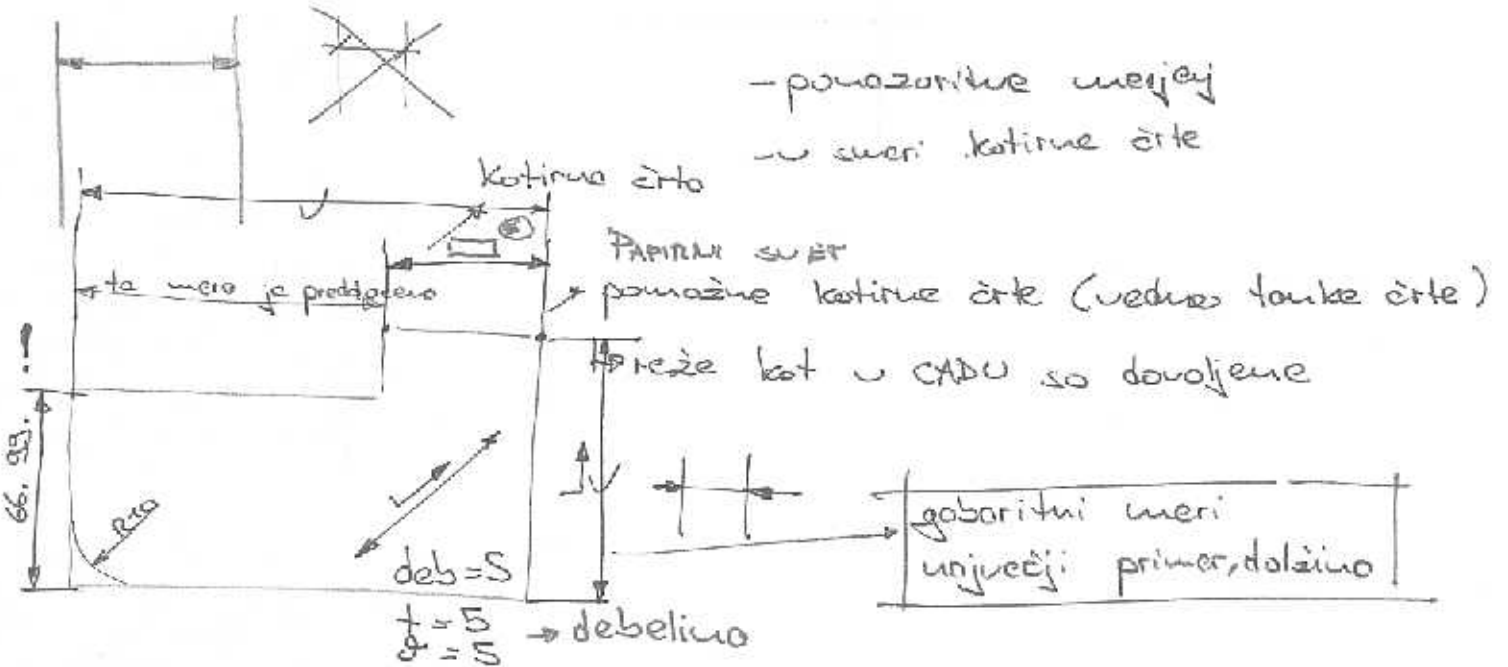 - ponazoritve merjej
- v smeri kotirne črte
kotirna črta
PAPIRNI SVET
ta mera je
pomožne kotirne črte (vedno tanke črte)
reže kot v CADU so dovoljene
66. 99.
R10
deb=5
t=5
=5
→ debelina
gabaritni meri
največji primer, dolžina